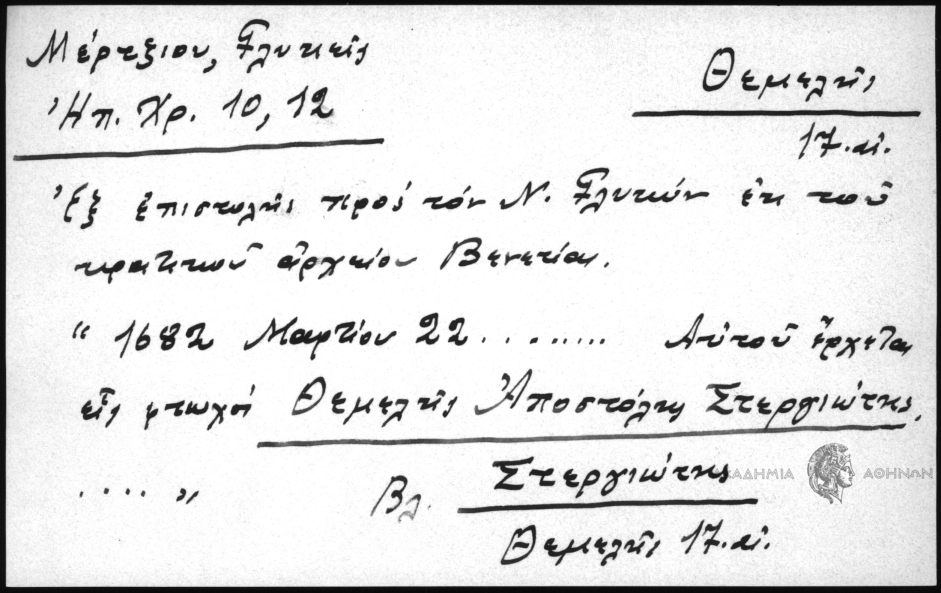 Μέρτζιου, Γλυκεῖς
Ἠπ. Χρ. 10, 12
Θεμελῆς
17. αἰ.
Ἐξ ἐπιστολῆς πρός τόν Ν. Γλυκύν ἐκ τοῦ
κρατικοῦ ἀρχείου Βενετίας.
“ 1682 Μαρτίου 22 ......... Αὐτοῦ ἔρχεται
εἷς φτωχός Θεμελῆς Ἀποστόλη Στεργιώτης.
.... ” Βλ. Στεργιώτης
Θεμελῆς 17. αἰ.
ΑΚΑΔΗΜΙΑ ΑΘΗΝΩΝ